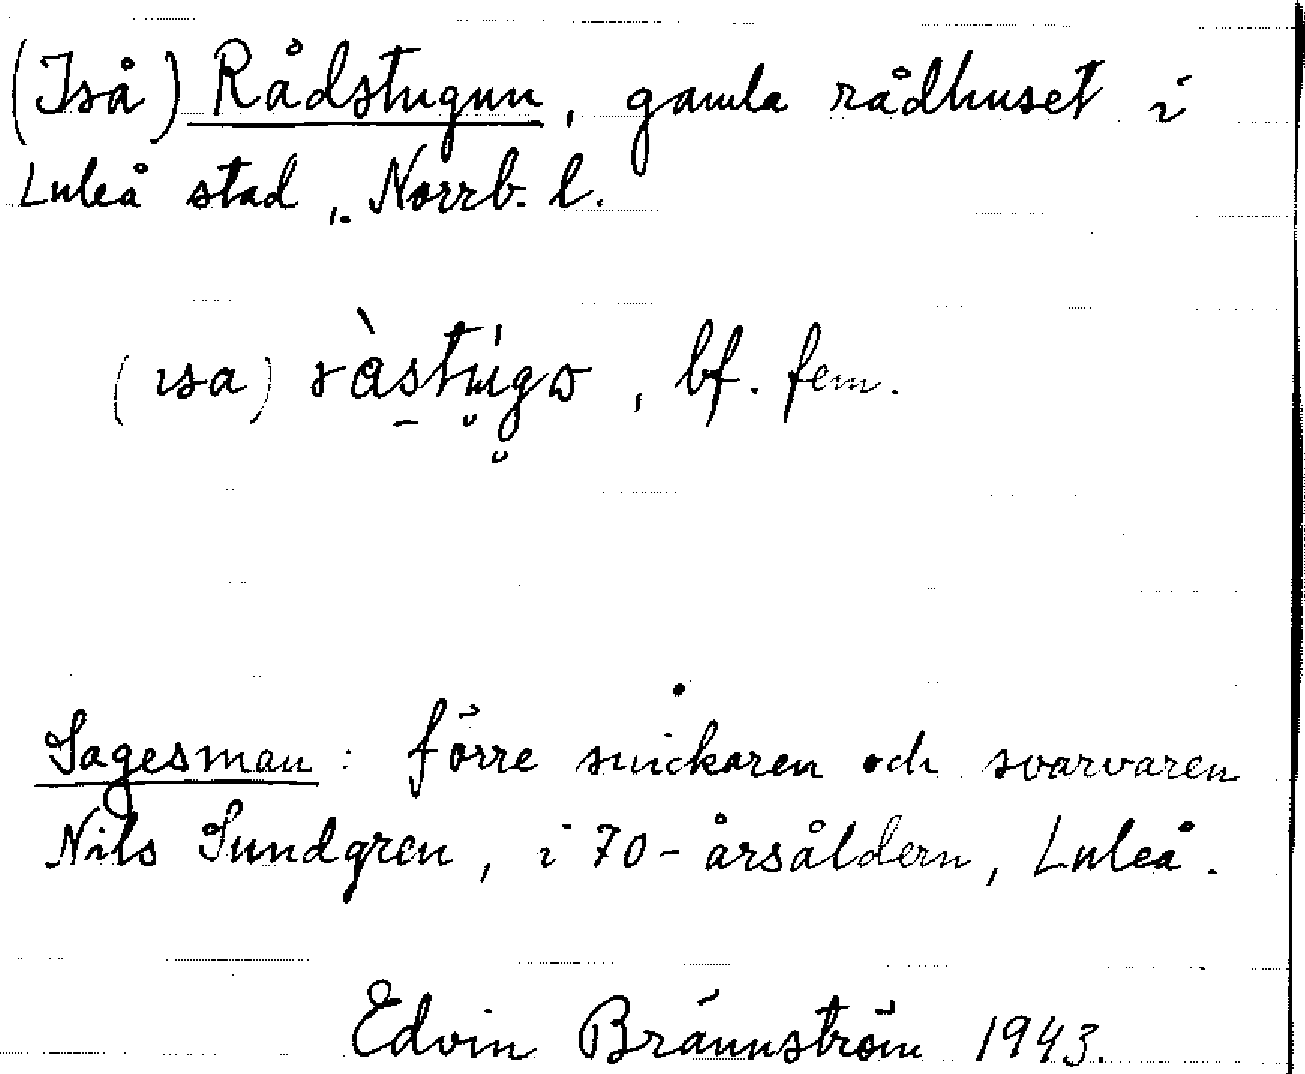 (Iså) Rådstugun, gamla rådhuset i
Luleå stad, Norrb. l.
(ısa) ràstu̇gɷ, bf. fem.
Sagesman: förre snickaren och svarvaren
Nils Sundgren, i 70-årsåldern, Luleå.
Edvin Brännström 1943.